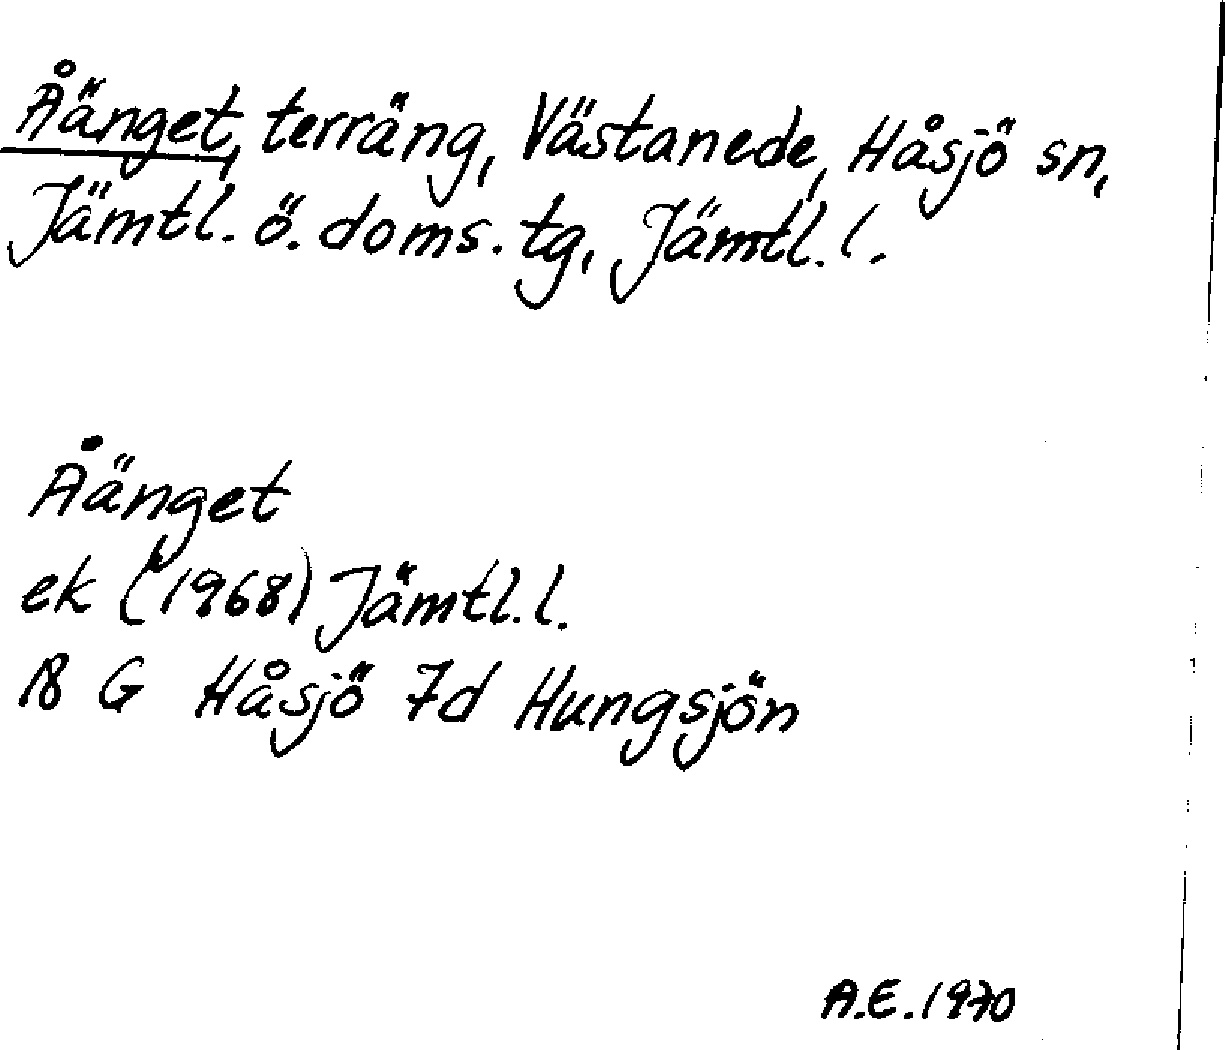 Åänget, terräng, Västanede, Håsjö sn,
Jämtl. ö. doms. tg, Jämtl. l.
Åänget
ek (1968) Jämtl. l.
18 G Håsjö 7d Hungsjön
A.E. 1970